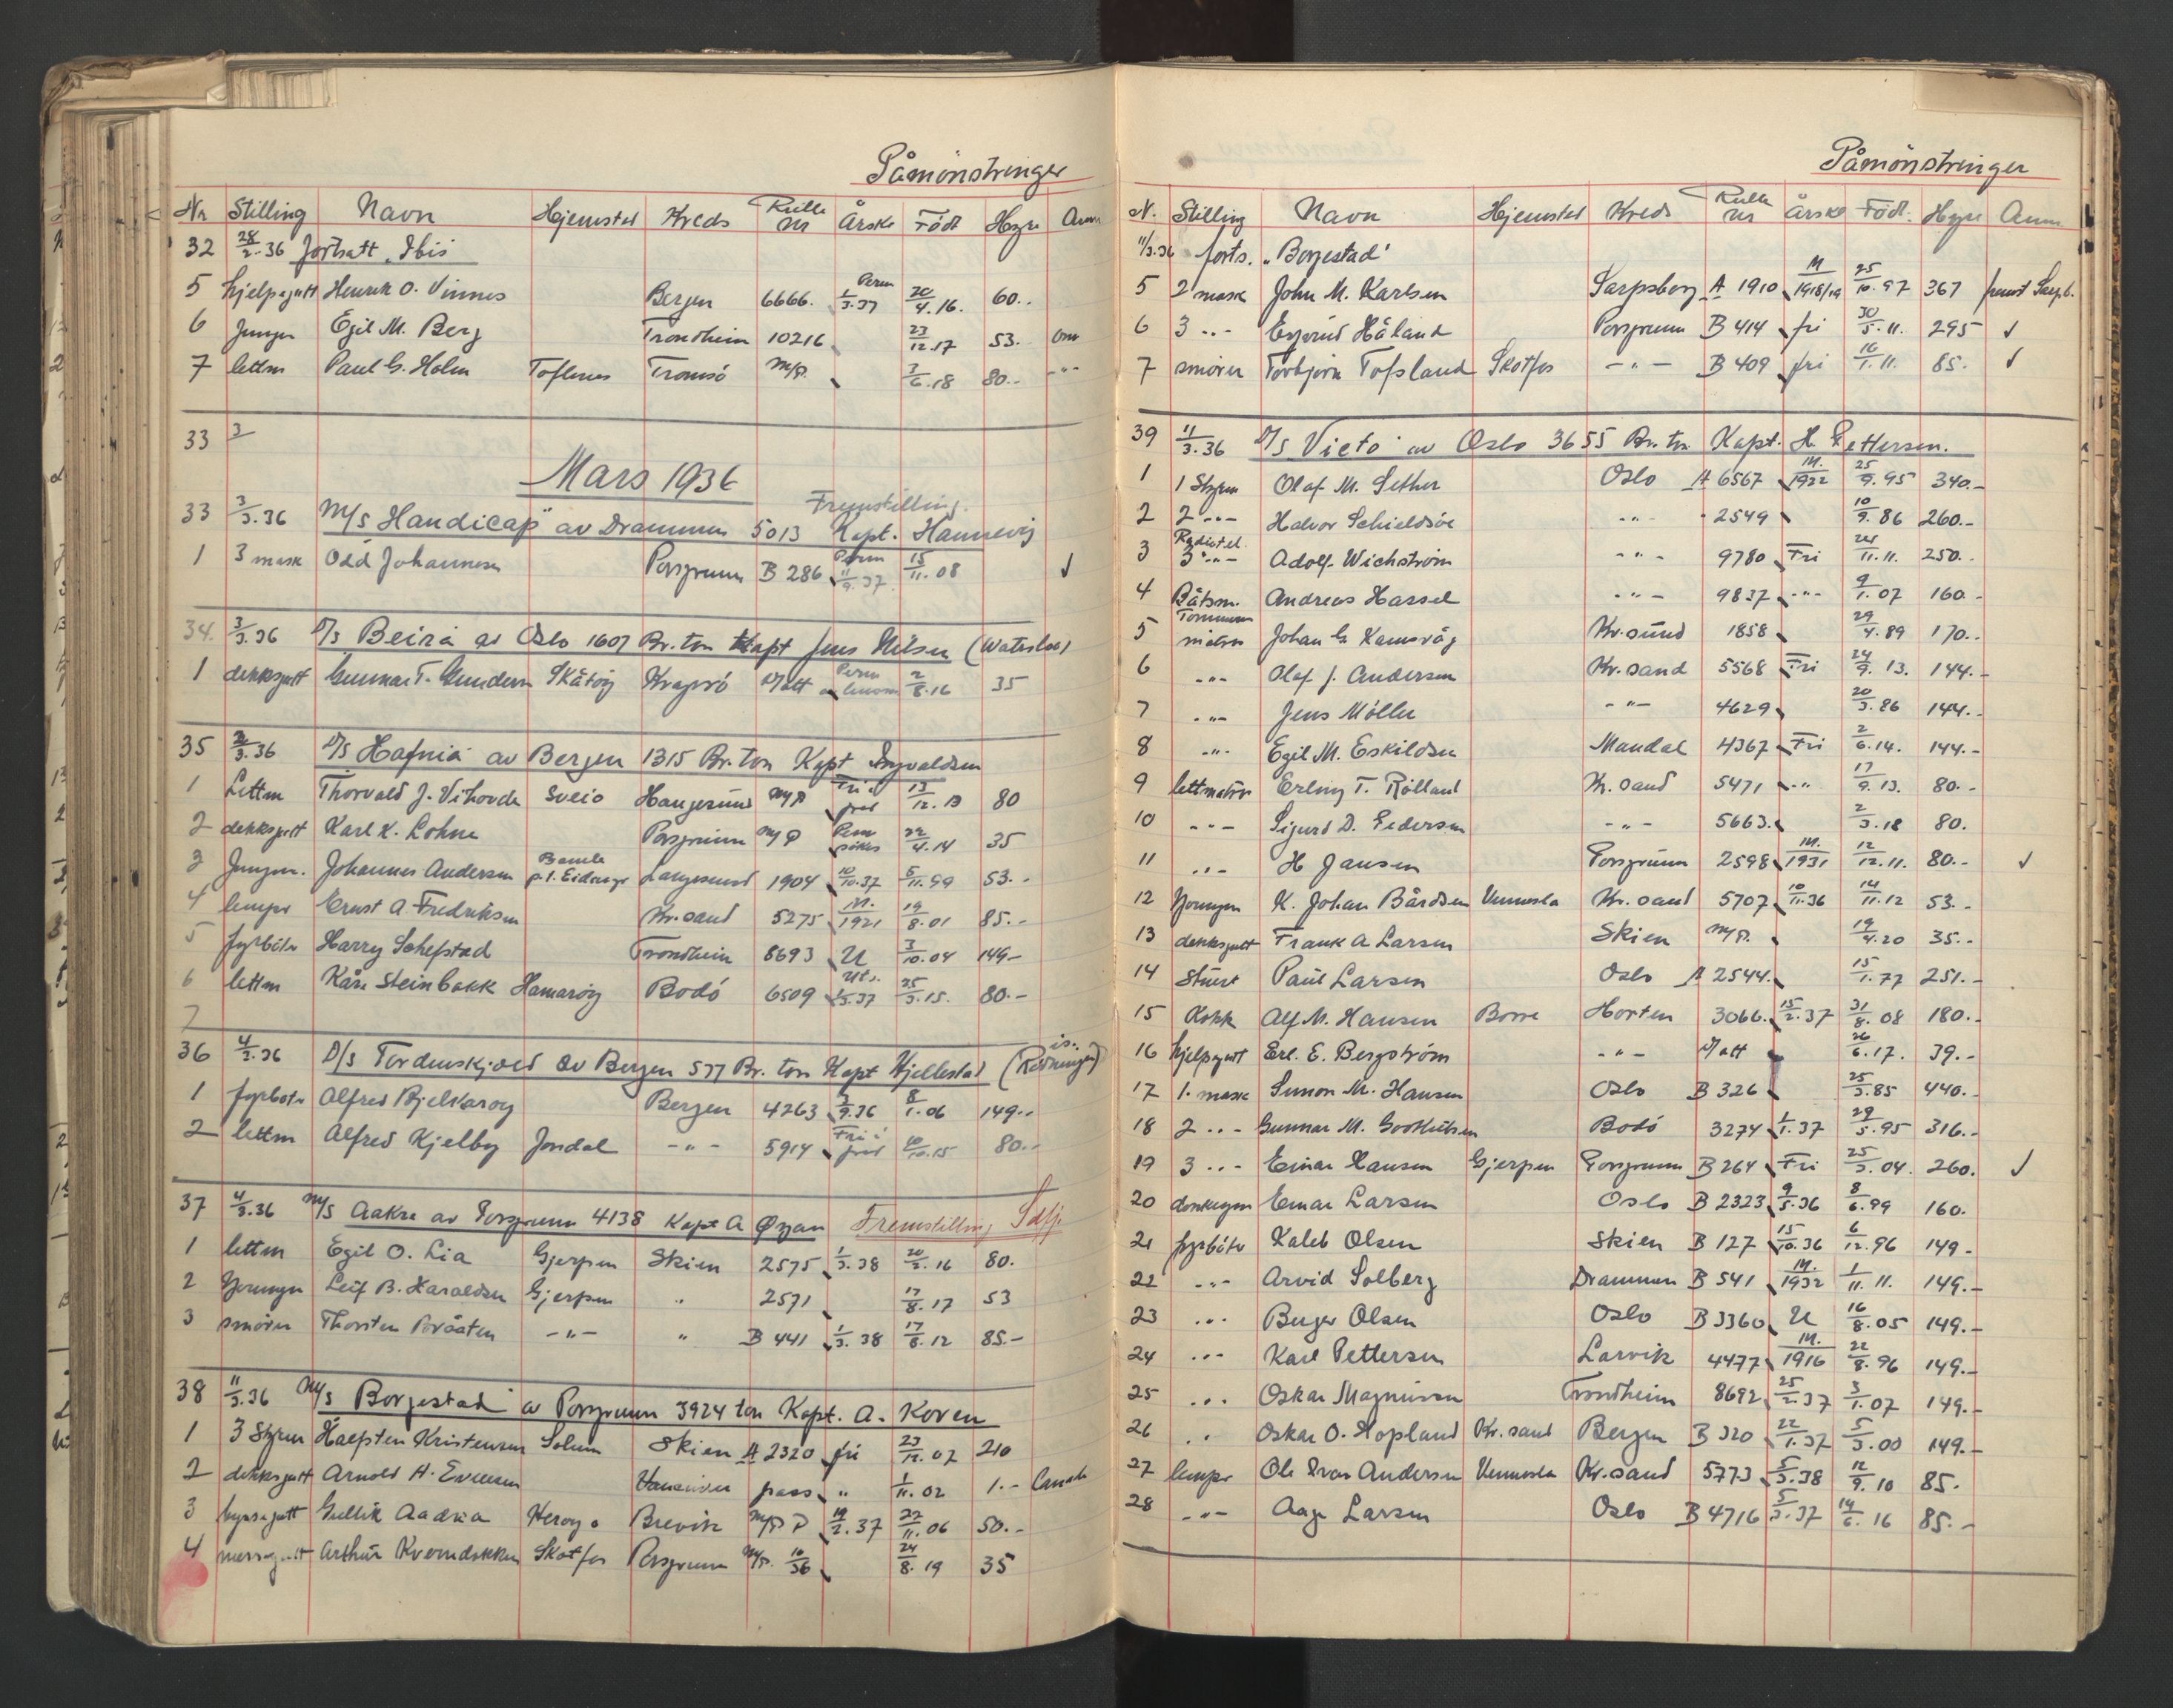 Påmönstringer
Nr Stilling Navn Hjemsted Kreds Rulle Nr Årskl Födt Hyre Anm
32 28/2.36 fortsatt "Ibis"
5 hjelpegutt Henrik O. Vinnes Bergen 6666. Perm 1/3.37 20/4.16. 60..
6 Jungm Egil M. Berg Trondheim 10216 23/12.17 53.
7 lettm Paul G. Holm Toflenes Tromsö M/P. 3/6.18 80.- -"-
33 3/
Mars 1936
33 3/3.36 M/s "Handicap" av Drammen 5013 Kapt. Hannevig Fremstilling.
1 3 mask Odd Johannesen Porsgrunn B 286 Perm 11/9.37 15/11.08 ✓
34. 3/3.36 D/s Beira av Oslo 1607 Br.ton Kapt Jens Nilsen (Waterloo)
1 dekksgutt Gunnar T. Gundern Skåtöy Kragerö Patt Perm 2/8.16 35
35 3/3.36 D/s Hafnia av Bergen 1315 Br.ton Kapt Ingvaldsen
1 Lettm Thorvald J. Vihovde Sveio Haugesund M/P Fri i fred 13/12.13 80
2 dekksgutt Karl K. Lohne Porsgrunn M/P Perm sökes 22/4.14 35
3 Jungm. Johannes Andersen Bamle p.t. Eidanger Langesund 1904 10/10.37 5/11.99 53.-
4 lemper Ernst A. Fredriksen Kr.sand 5275 M. 1921 19/8.01 85.-
5 fyrböter Harry Schefstad Trondheim 8693 U 3/10.04 149-
6 lettm Kåre Steinbakk Hamaröy Bodö 6509 Uts. 1/5.37 25/3.15. 80.-
7
36 4/3.36 D/s Tordenskjold av Bergen 537 Br. ton Kapt Kjellestad
1 fyrbötr Alfred Bjelkaroy Bergen 4263 3/9.36 8/1.06 149.-
2 lettm Alfred Kjelby Jondal -"- 5914 Fri i fred 10/10.15 80.-
37 4/3.36 M/s Aakre av Porsgrunn 4138 Kapt A Øyan Fremstilling
1 lettm Egil O. Lia Gjerpen Skien 2575 1/3.38 20/2.16 80.
2 Jormgn Leif B. Haraldsen Gjerpen " 2571 17/8.17 53
3 smörer Thorsten Poråsten -"- " B 441 1/3.38 17/8.12 85.-
38 11/3.36 M/s Borgestad av Porsgrunn 3924 ton Kapt. A. Koren
1 3 Styrm Halfsten Kristensen Solum Skien A 2320 fri 23/12.07 210
2 dekksgutt Arnold H. Evensen pass " 1/11.02 1.-
3 byssegutt Gullik Aadna Heröya Brevik M/P P 19/2.37 22/11.06 50.-
4 messegutt Arthur Kverndokken Skotfos Porsgrunn M/P. 10/36 24/8.19 35
Påmönstringer
N. Stilling Navn Hjemsted Kreds Rulle Nr Årskl Födt. Hyre Anm.
11/3.36 forts. "Borgestad"
5 2 mask John M. Karlsen Sarpsborg A 1910 M 1918/19 25/10.97 367 fremst Sarpb.
6 3 -"- Eyvind Håland Porsgrunn B 414 fri 30/5.11. 295 ✓
7 smörer Torbjörn Tofsland Skotfos -"- B 409 fri 16/1.11. 85. ✓
39 11/3.36 D/s "Victo" av Oslo 3655 Br.tn Kapt. H. Pettersen.
1 1 Styrm Olaf M. Sether Oslo A 6567 M. 1922 25/9.95 340.-
2 2 -"- Halvor Schieldsöe -"- 2549 10/9.86 260.-
3 Radiotel. 3 -"- Adolf Wichström -"- 9780 Fri 24/11.11. 250.-
4 Båtsm. Andreas Hassel -"- 9837 -"- 9/1.07 160.-
5 Tömmerm matros Johan G. Ramsvåg Kr.sund 1858 29/4.89 170..
6 -"- Olaf J. Andersen Kr.sand 5568 Fri 24/9.13. 144.-
7 -"- Jens Möller -"- 4629 20/3.86 144.-
8 -"- Egil M. Eskildsen Mandal 4367 Fri 2/6.14. 144.-
9 lettmatros Erling T. Rölland Kr.sand 5471 -"- 17/9.13. 80.-
10 -"- Sigurd D. Pedersen -"- 5663. 2/3.18 80.
11 -"- H Jansen Porsgrunn 2598 M. 1931 12/12.11. 80.- ✓
12 Jormgn K. Johan Bårdsen Vennesla Kr.sand 5707 10/11.36 14/11.12 53.-
13 dekksgutt Frank A Larsen Skien M/P. 19/4.20 35.-
14 Stuert Paul Larsen Oslo A 2544. 15/1.77 251.-
15 Kokk Alf M. Hansen Borre Horten 3066. 15/2.37 31/8.08 180.-
16 hjelpegutt Erl. E. Bergström -"- Patt 26/6.17. 39.-
17 1. mask Simon M. Hansen Oslo B 326 25/3.85 440.-
18 2 -"- Gunnar M. Bodö 3274 1/1.37 29/5.95 316.-
19 3 -"- Einar Hansen Gjerpen Porsgrunn B 264 Fri 25/3.04. 260. ✓
20 donkeym Einar Larsen Oslo B 2323 9/5.36 8/6.99 160.
21 fyrböter Kaleb Olsen Skien B 127 15/10.36 6/12.96 149.-
22 -"- Arvid Solberg Drammen B 541 M. 1932 1/11.11. 149.-
23 -"- Berger Olsen Oslo B 3360 U 16/8.05 149.-
24 -"- Karl Pettersen Larvik 4477 M. 1916 22/8.96 149.-
25 -"- Oskar Magnussen Trondheim 8692 25/2.37 3/1.07 149.-
26 -"- Oskar O. Hopland Kr.sand Bergen B 320 22/1.37 5/3.00 149.-
27 lemper Ole Ivar Andersen Vennesla Kr.sand 5773 5/3.38 12/9.10 85.
28 -"- Aage Larsen Oslo B 4716 5/3.37 14/6.16 85.-